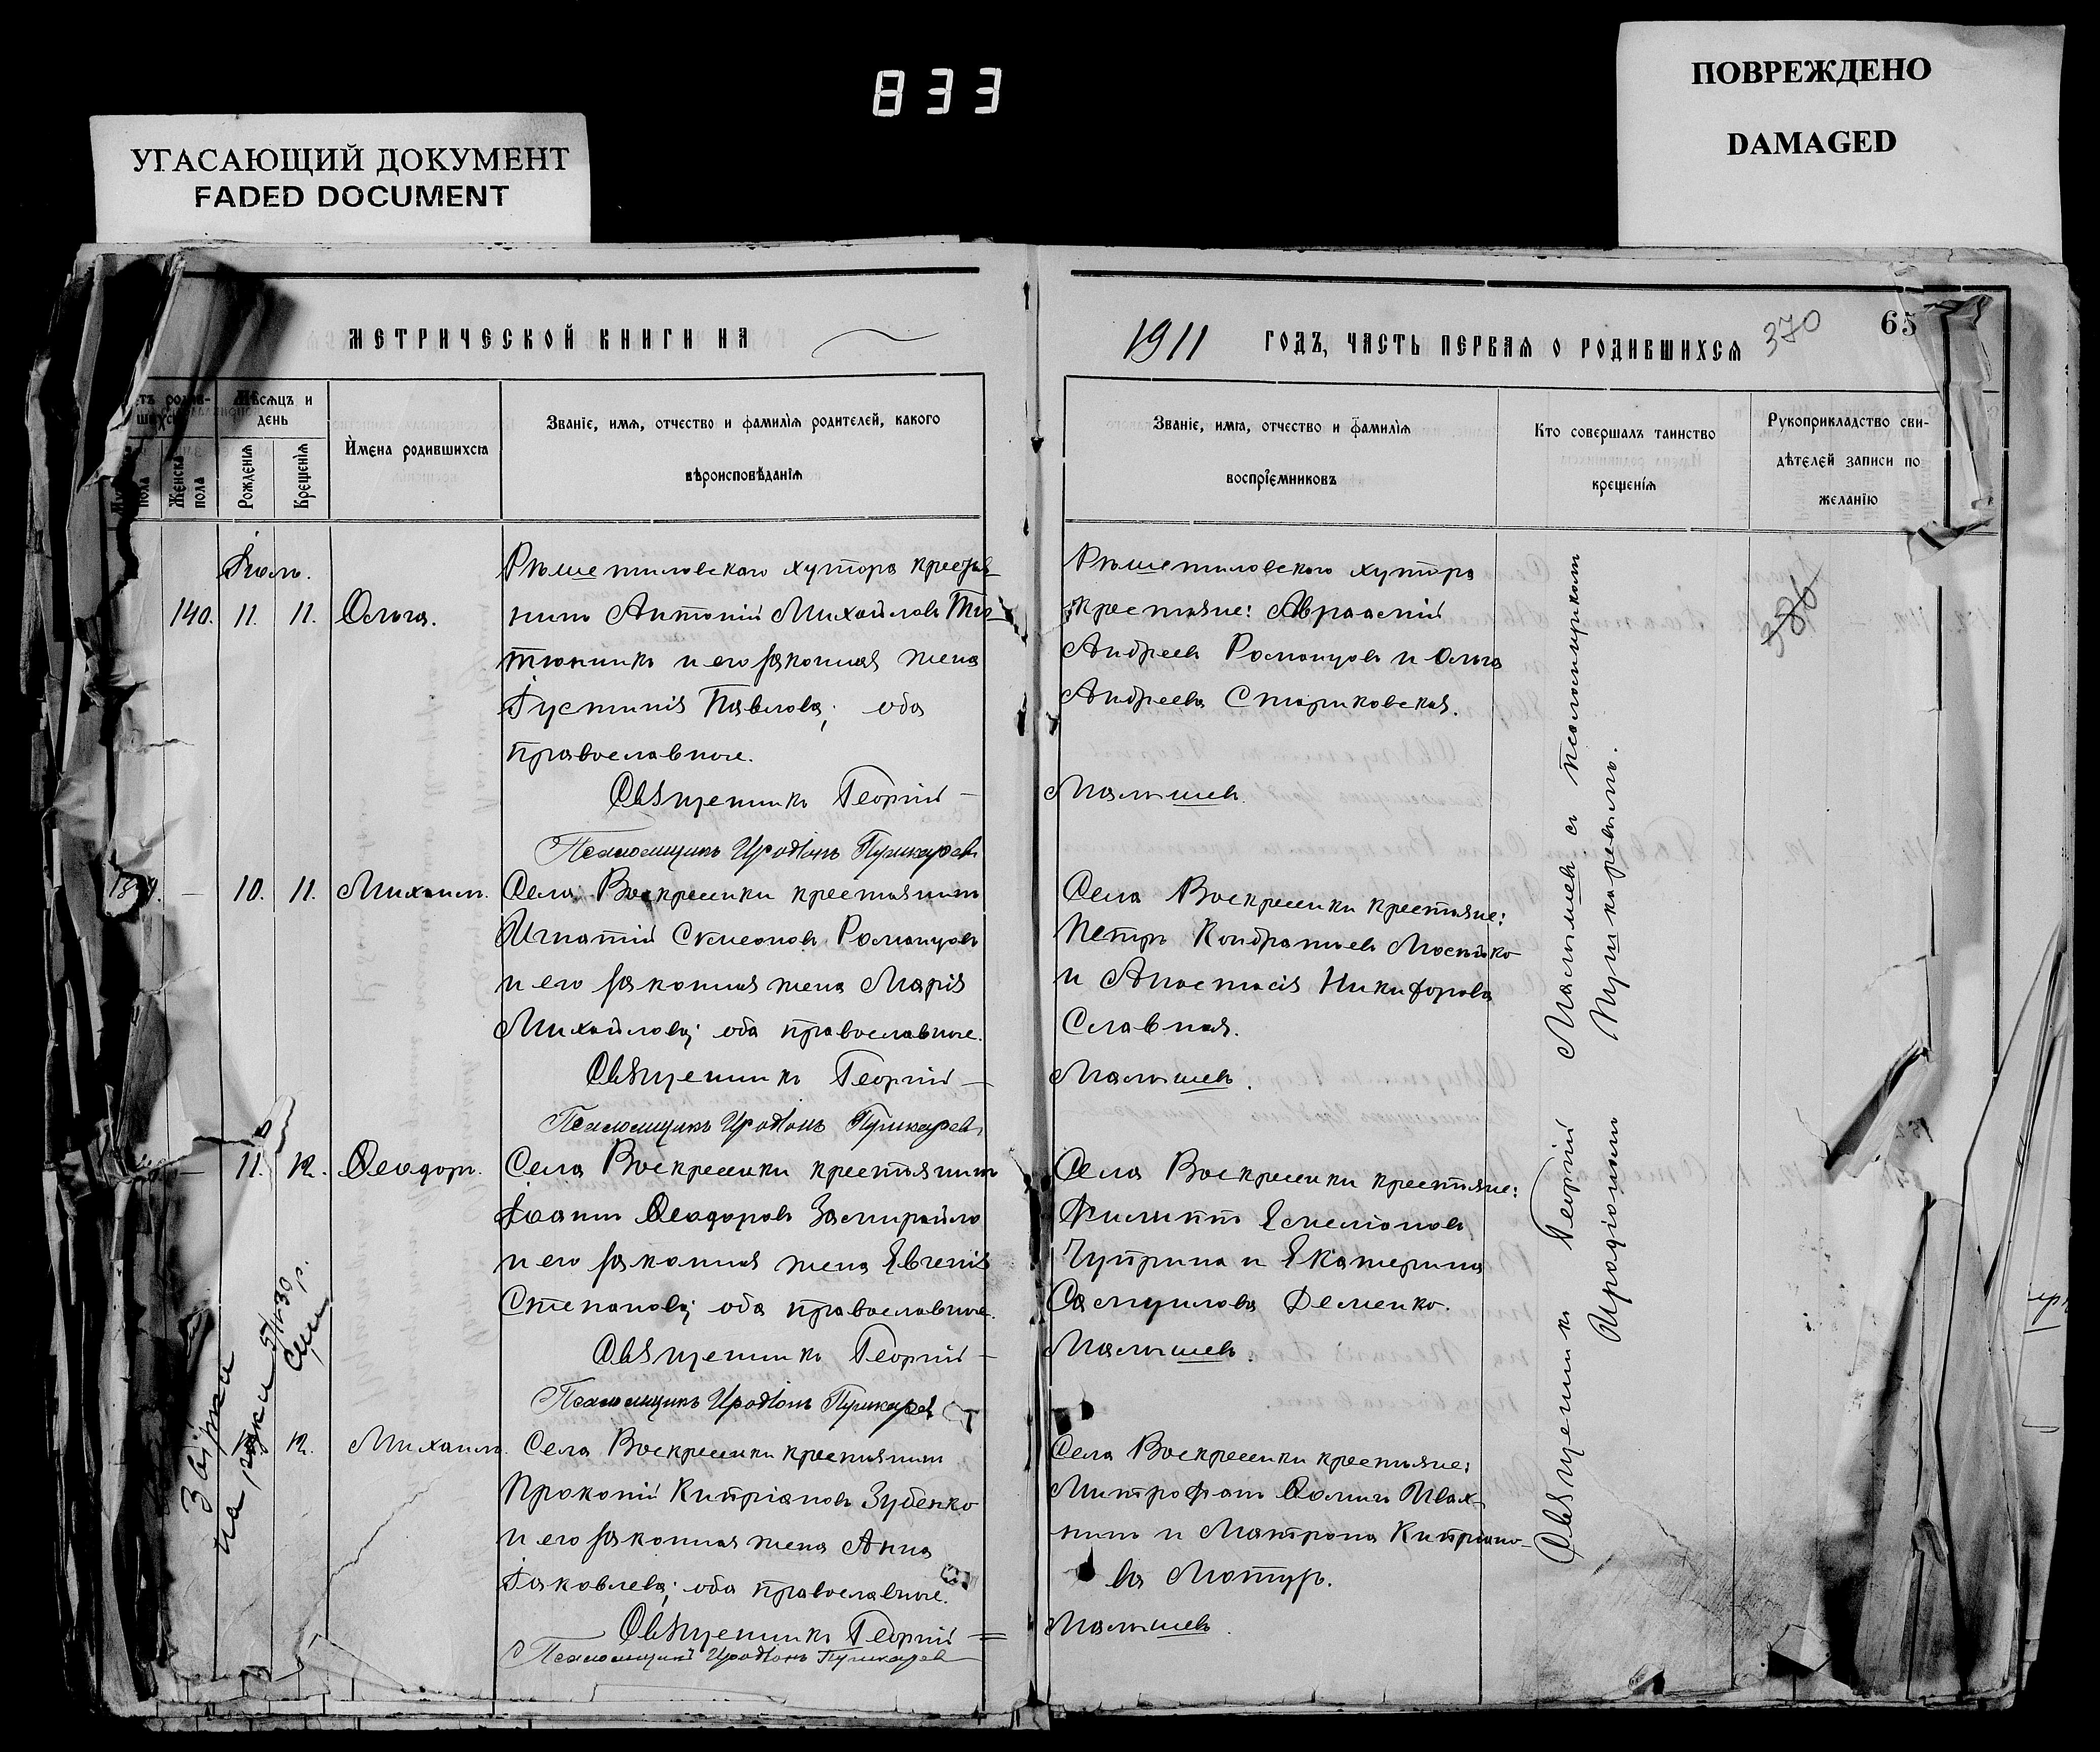 833
ПОВРЕЖДЕНО
DAMAGED
УГАСАЮЩИЙ ДОКУМЕНТ
FADED DOCUMENT
МЕТРИЧЕСКОЙ КНИГИ НА
1911 ГОДЪ, ЧАСТЬ ПЕРВАЯ О РОДИВШИХСЯ
370
65
Мѣсяцъ и
день
Женска
пола
Рожденія
Крещенія
Имена родившихся
Званіе, имя, отчество и фамилія родителей, какого
вѣроисповѣданія
Званіе, имя, отчество и фамилія
воспріемниковъ
Кто совершалъ таинство
крещенія
Рукоприкладство сви-
дѣтелей записи по
желанію
Іюль.
140. 11. 11. Ольга.
Рѣшетиловскаго хутора крестья-
нинъ Антоній Михайловъ Тю-
тюникъ и его законная жена
Іустинія Павлова; оба
православные.
Священникъ Георгій
Псаломщикъ Иродіонъ Пушкаревъ
Рѣшетиловскаго хутора
крестьяне: Авраамій
Андреевъ Романцовъ и Ольга
Андреева Стариковская.
Малышевъ.
386
— 10. 11. Михаилъ.
Села Воскресенки крестьянинъ
Игнатій Симеоновъ Романцовъ
и его законная жена Марія
Михайлова; оба православные.
Священникъ Георгій
Псаломщикъ Иродіонъ Пушкаревъ
Села Воскресенки крестьяне:
Петръ Кондратьевъ Мосѣйко
и Анастасія Никифорова
Славная.
Малышевъ.
— 11. 12. Ѳеодоръ.
Села Воскресенки крестьянинъ
Іоаннъ Ѳеодоровъ Замирайло
и его законная жена Евгенія
Степанова; оба православные.
Священникъ Георгій
Псаломщикъ Иродіонъ Пушкаревъ
Села Воскресенки крестьяне:
Филиппъ Емеліановъ
Чуприна и Екатерина
Самуилова Деменко.
Малышевъ.
12. Михаилъ.
Села Воскресенки крестьянинъ
Прокопій Кипріановъ Зубенко
и его законная жена Анна
Іаковлева; оба православные.
Священникъ Георгій
Псаломщикъ Иродіонъ Пушкаревъ
Села Воскресенки крестьяне:
Митрофанъ Ѳоминъ Ивах-
нинъ и Матрона Кипріано-
ва Мотуръ.
Малышевъ.
Священникъ Георгій Малышевъ съ псаломщикомъ
Иродіономъ Пушкаревымъ.
на руки